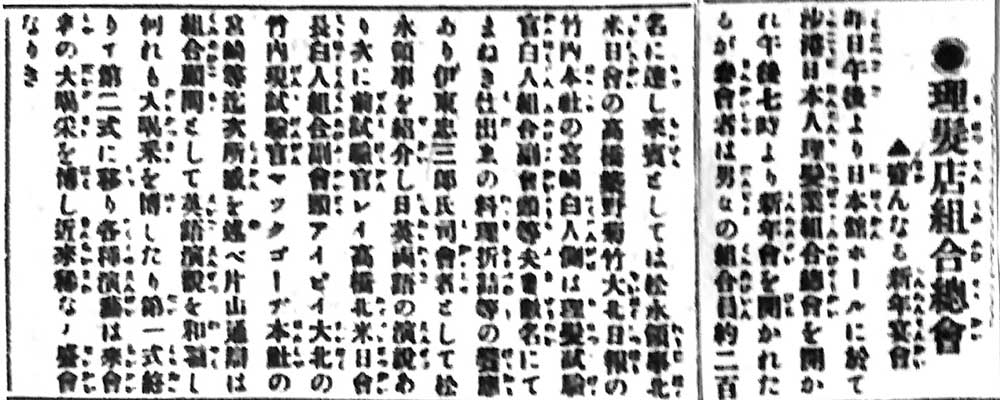 ●理髪店組合總會
▲盛んなる新年宴會
昨日午後より日本館ホールに於て
沙港日本人理髪業組合總會を開か
れ午後七時より新年會を開かれた
るが參會者は男女の組合員約二百
名に達し來賓としては松永領事北
米日會の高橋 野菊竹大北日報の
竹内本社の宮崎白人側は理髪試驗
官白人組合副會頭等夫妻數名にて
まねき仕出ゑの料理折詰等の饗應
あり伊東忠三郎氏司會者として松
永領事を紹介し日英両語の演説あ
り次に前試驗官レイ高橋北米日會
長白人組合副會頭アイビイ大北の
竹内現試驗官マックゴーデ本社の
宮崎等迄次所感を述べ片山通辯は
組合顧問として英語演説を和譯し
何れも大喝采を博したり第一式終
りて第二式に移り各種演藝は來會
者の大喝采を博し近來稀なる盛會
なりき